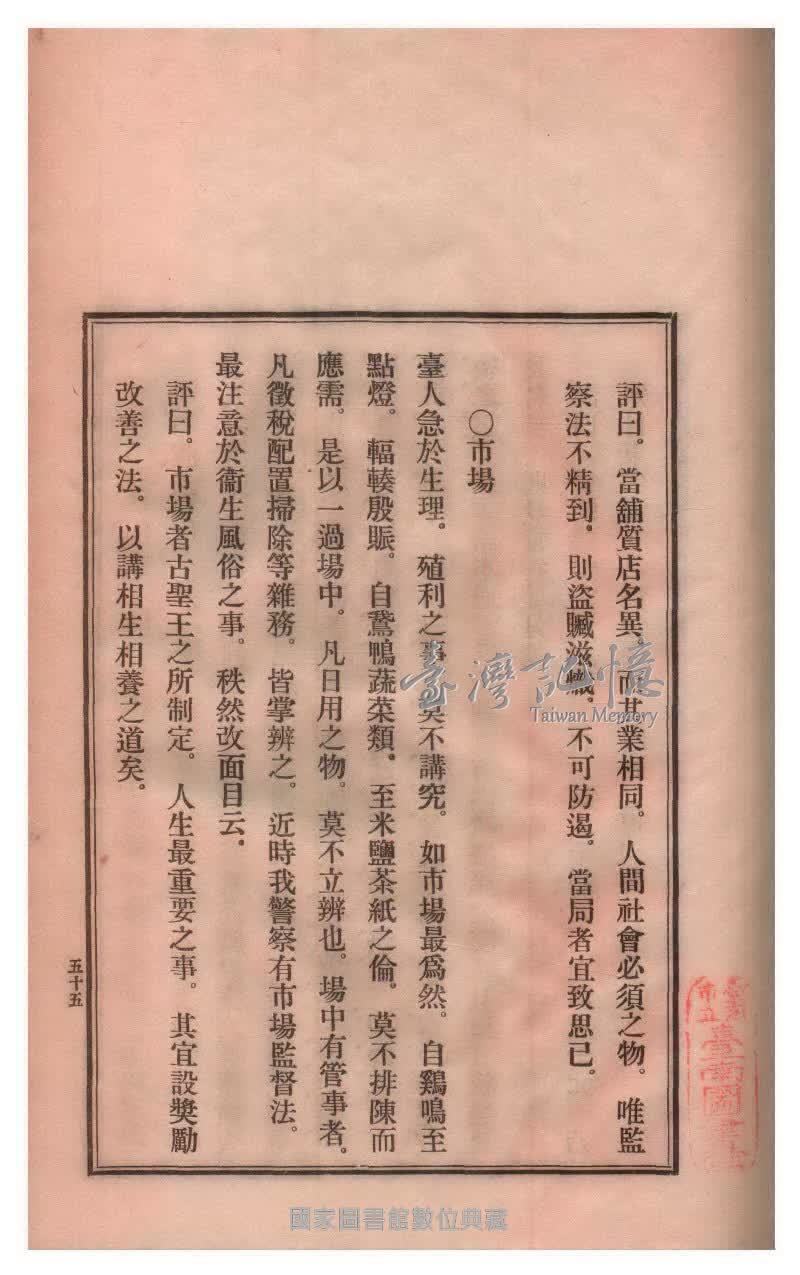 評曰。當舖質店名異。而其業相同。人間社會必須之物。唯監
察法不精到。則盜贓滋熾。不可防遏。當局者宜致思已。
〇市場
臺人急於生理。殖利之事。莫不講究。如市場最爲然。自鷄鳴至
點燈。輻輳殷賑。自鵞鴨蔬菜類。至米鹽茶紙之倫。莫不排陳而
應需。是以一過場中。凡日用之物。莫不立辨也。場中有管事者。
凡徵稅配置掃除等雜務。皆掌辨之。近時我警察有市場監督法。
最注意於衞生風俗之事。秩然改面目云。
評曰。市場者古聖王之所制定。人生最重要之事。其宜設獎勵
改善之法。以講相生相養之道矣。
五十五
臺灣記憶
Taiwan Memory
國家圖書館數位典藏